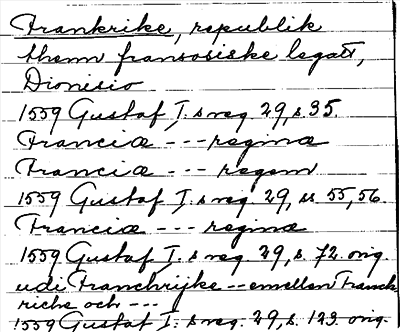 Frankrike, republik
thenn fransosiske legatt,
Dionisio
1559 Gustaf I.s reg. 29, s. 35.
Franciæ --- reginæ
Franciæ --- regem
1559 Gustaf I.s reg. 29, ss 55, 56.
Franciæ --- reginæ
1559 Gustaf I. s reg. 29, s. 72. orig.
udi Franchrijke -- emellen Franck-
riche och ---
1559 Gustaf I. s reg. 29, s. 123. orig.